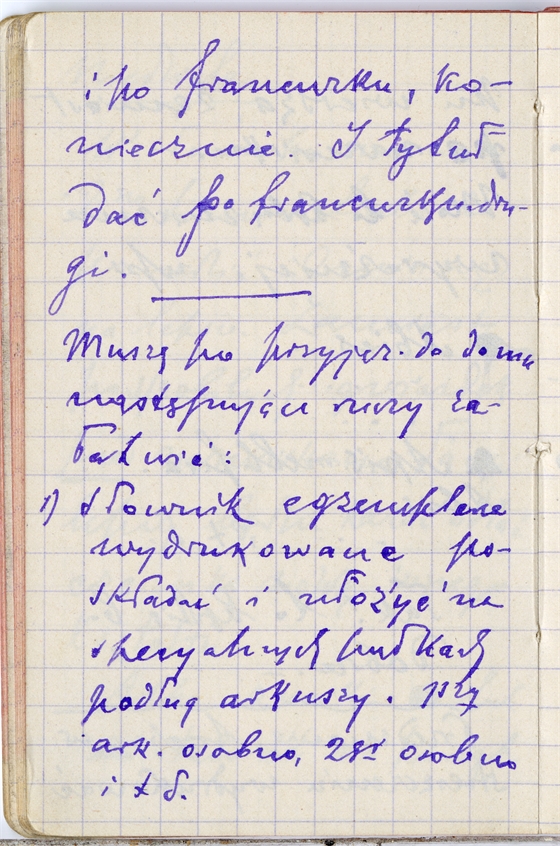 i po francusku, ko-
niecznie. I tytuł
dać po francusku dru-
gi.
Muszę po przyjąz. do domu
następujące rzeczy za-
łatwić:
1) słownik egzemplarze
wydrukowane po-
składać i ułożyć na
specyalnych półkach
podług arkuszy. 1szy
ark. osobno, 2gi osobno
i t d.